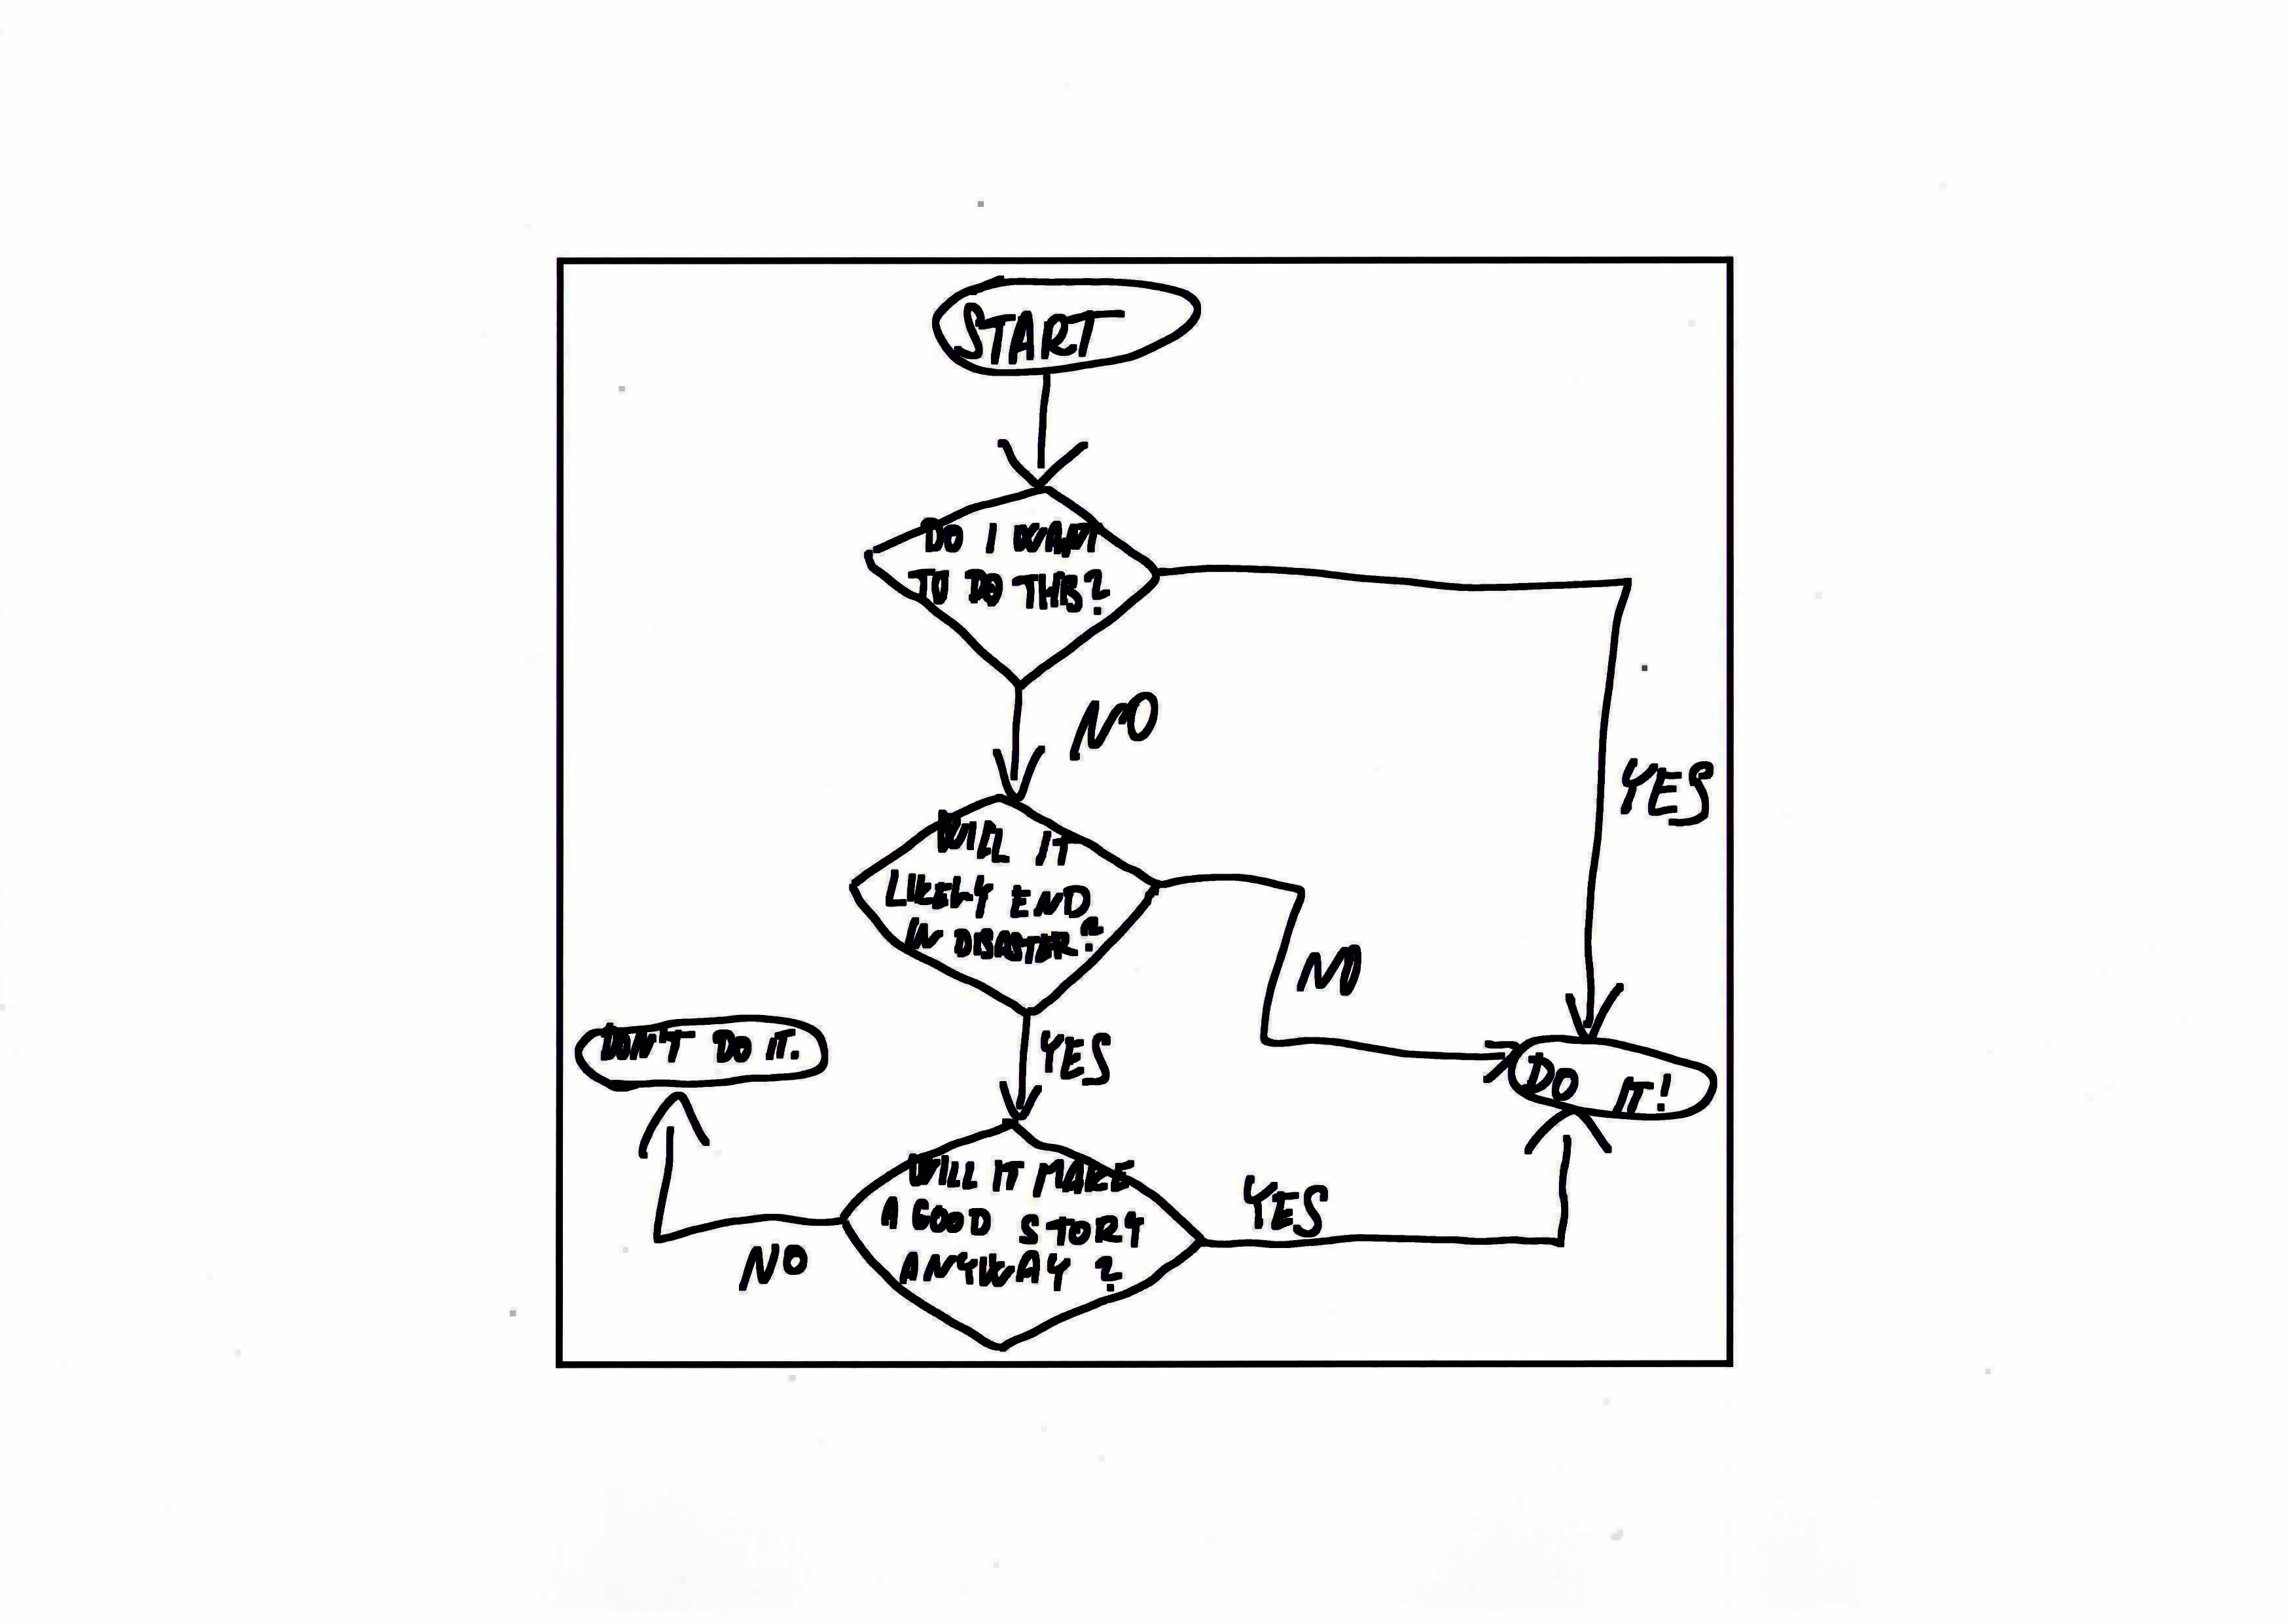 START
DO I WANT
TO DO THIS?
NO
YES
WILL IT
LIKELY END
IN DISASTER?
NO
DON'T DO IT.
YES
DO IT!
WILL IT MAKE
A GOOD STORY
ANYWAY?
YES
NO